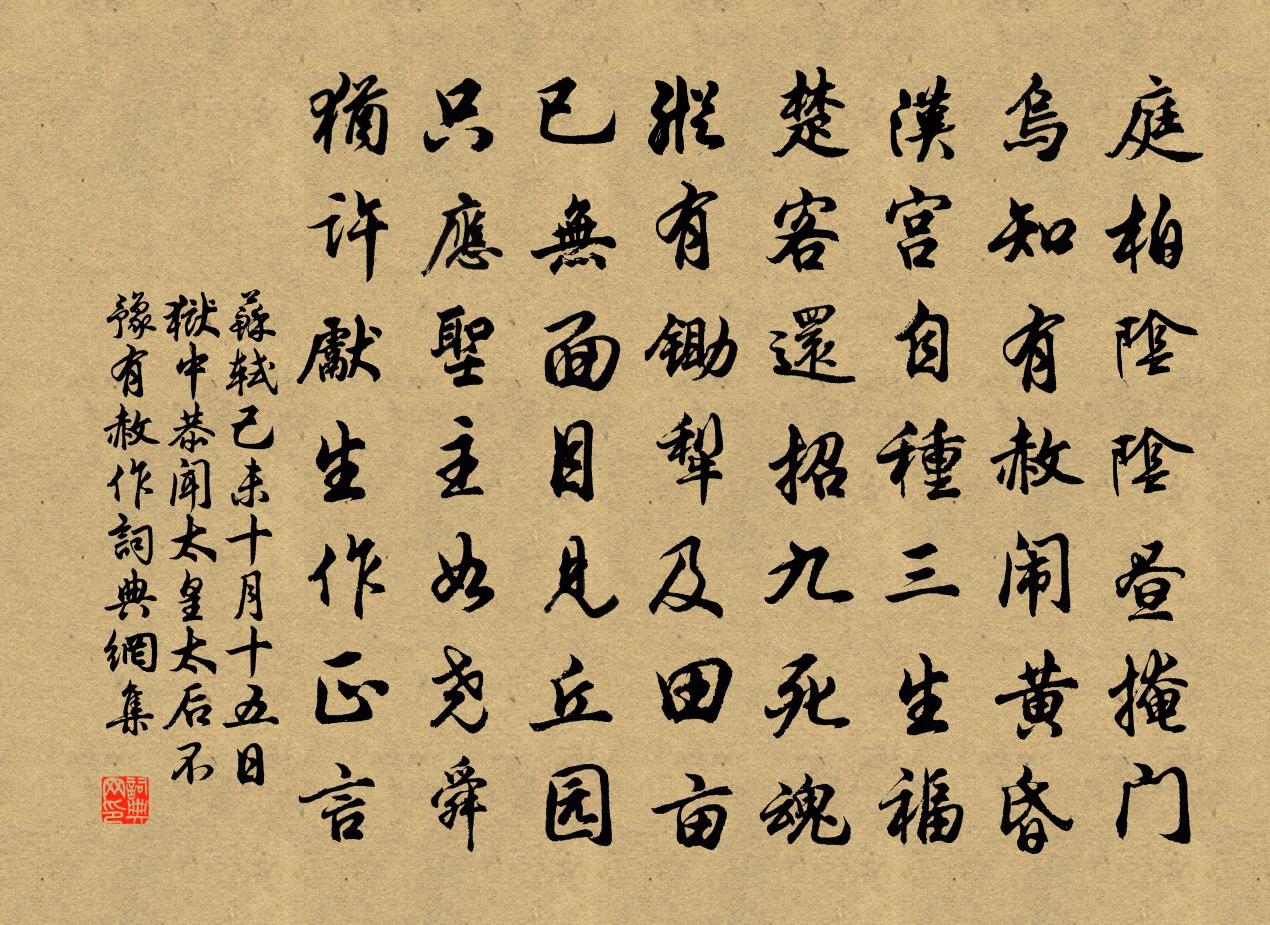 庭柏陰陰晝掩門
烏知有赦闹黃昏
漢宮自種三生福
楚客還招九死魂
縱有鋤犁及田亩
已無面目見丘园
只應聖主如尧舜
猶許獻生作正言
蘇軾己未十月十五日
獄中恭聞太皇太后不
豫有赦作詞典網集
詞典
网印